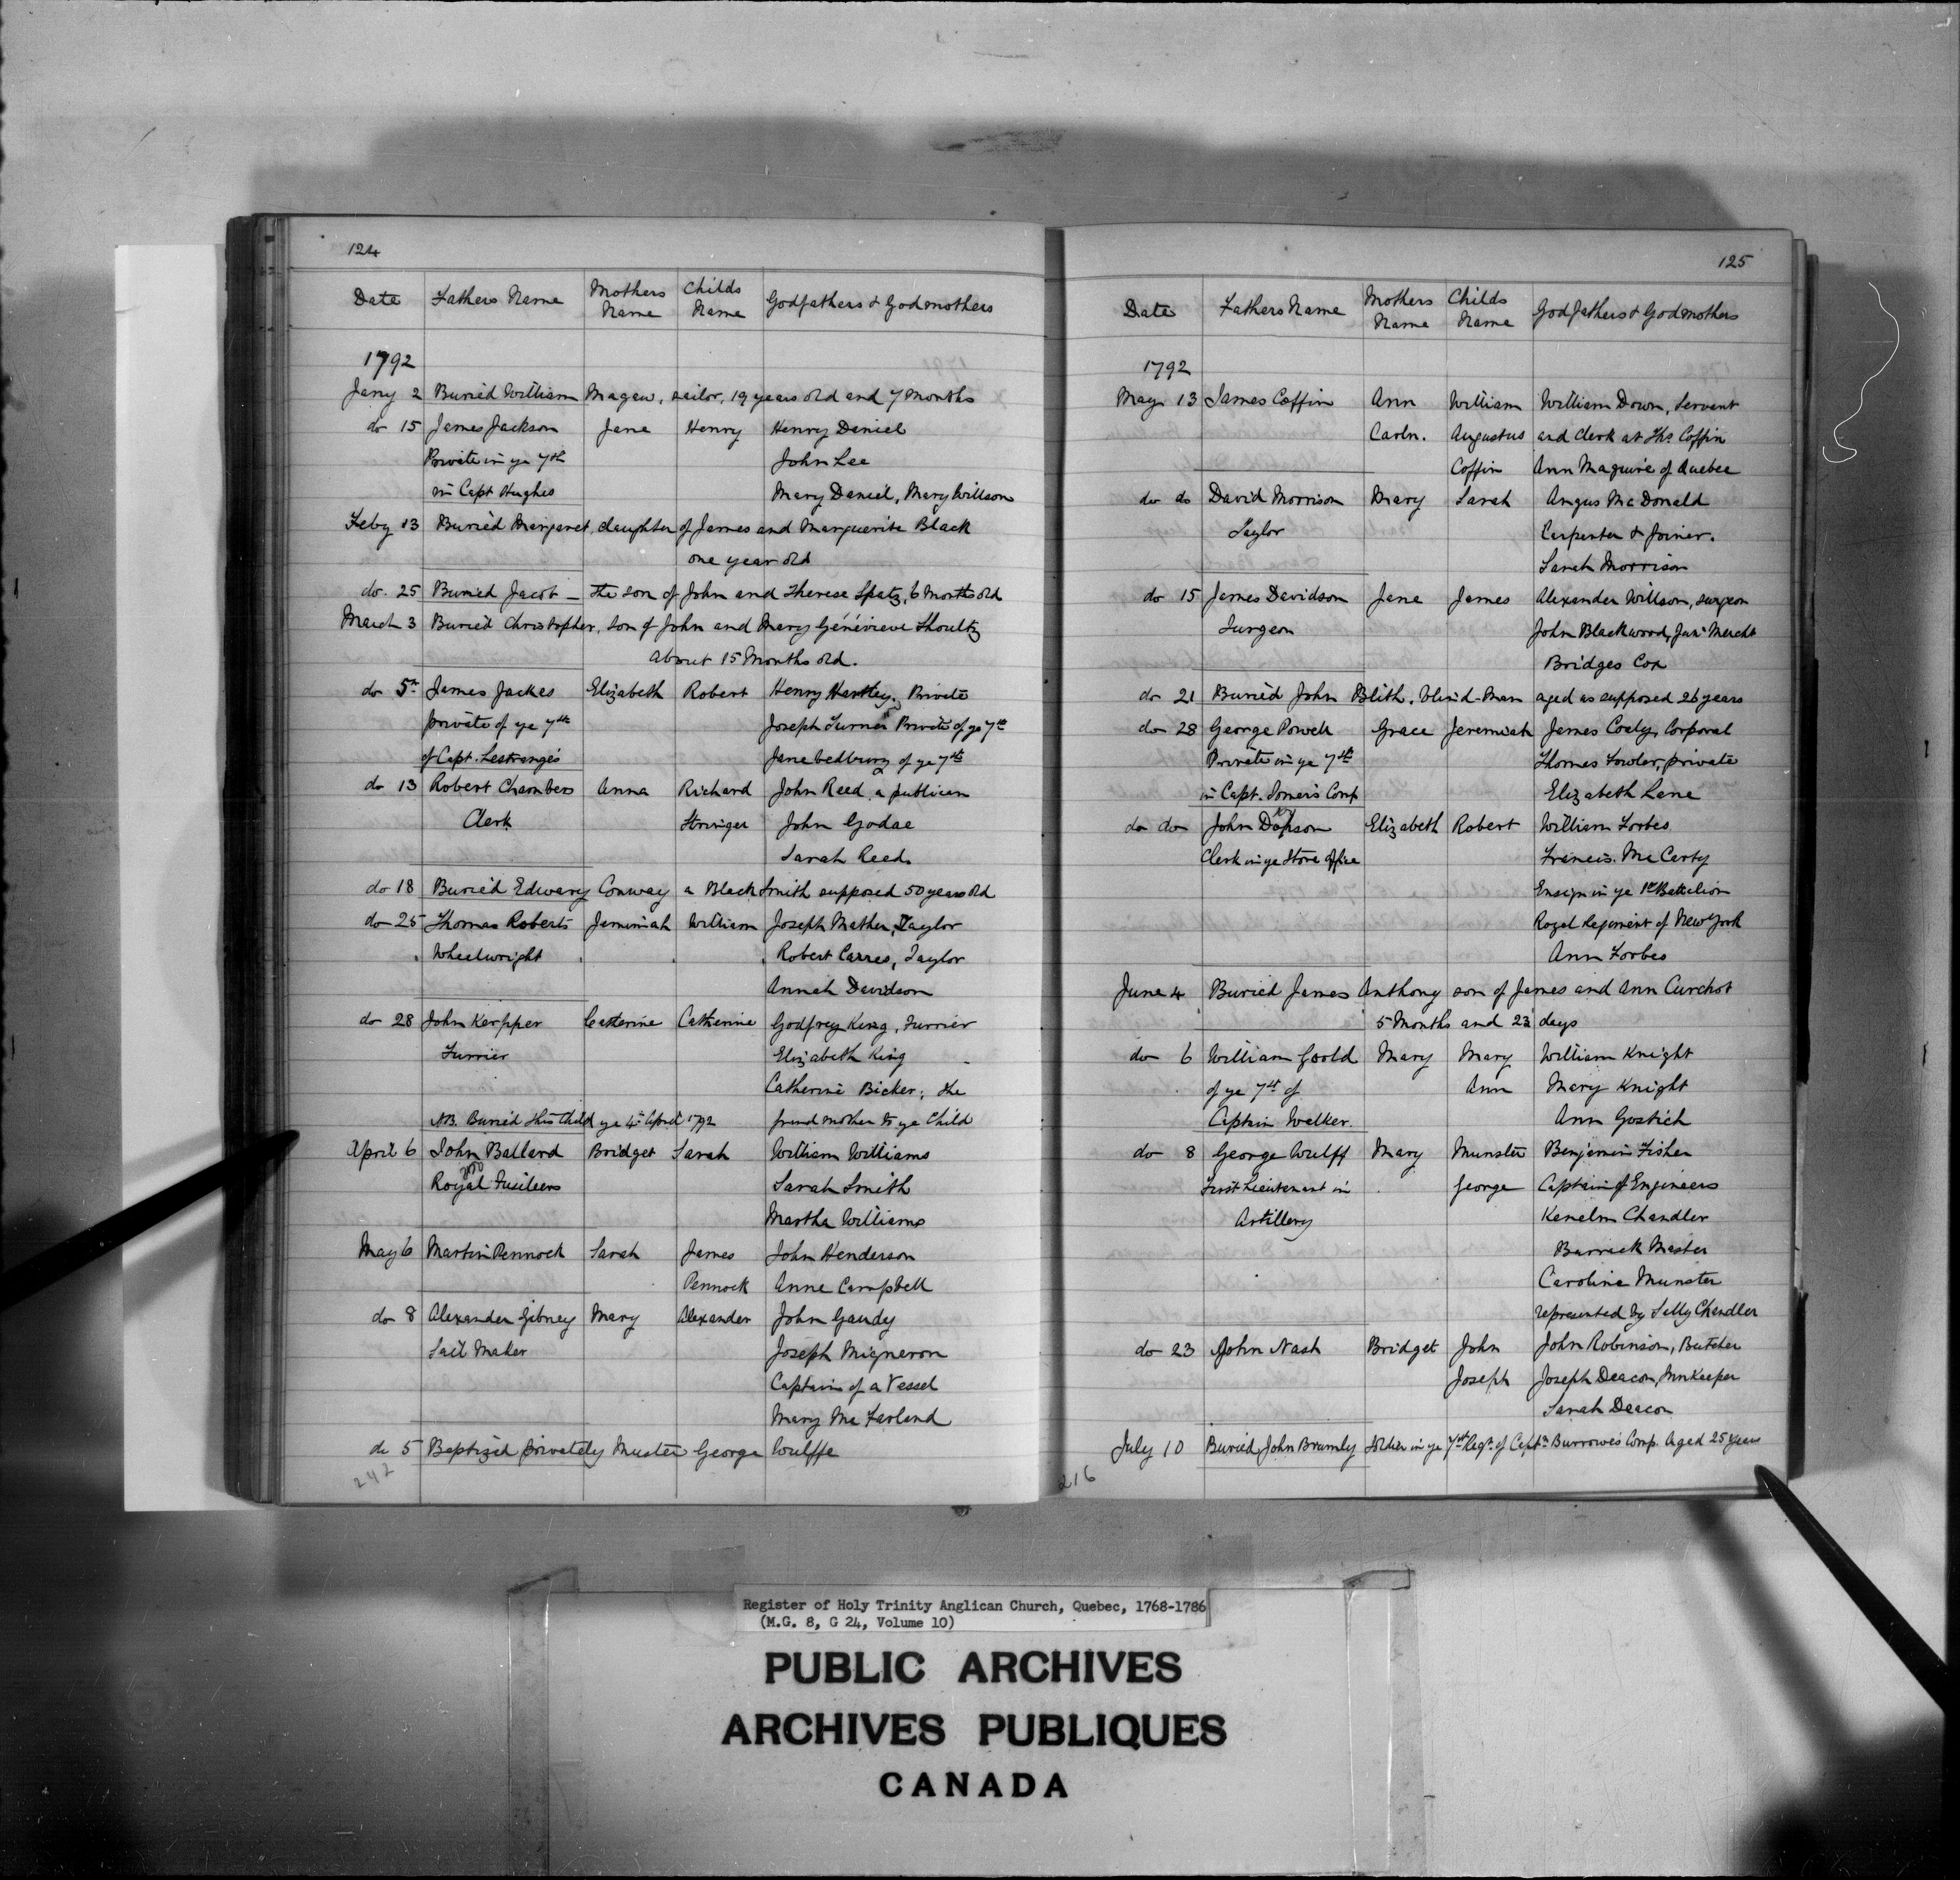 124
Date Fathers Name Mothers Name Childs Name Godfathers & Godmothers
1792
Jany 2 Buried William Magaw, sailor, 19 years old and 7 Months
do 15 James Jackson Jane Henry Henry Daniel
Private in ye 7th John Lee
in Capt Hughes Mary Daniel, Mary Willson
Feby 13 Buried Margaret, daughter of James and Marguerite Black
one year old
do. 25 Buried Jacob — the son of John and Therese Spatz, 6 Months old
March 3 Buried Christopher, son of John and Mary Généviève Shoultz
About 15 Months old.
do 5th James Jackes Elizabeth Robert Henry Hartley, Private
private of ye 7th Joseph Turner Private of ye 7th
of Capt. Lestrange's Jane bedbury of ye 7th
do 13 Robert Chambers Anna Richard John Reed, a publican
Clerk Stringer John Godae
Sarah Reed.
do 18 Buried Edward Conway a Black Smith supposed 50 years old
do 25 Thomas Roberts Jemimiah William Joseph Mather, Taylor
Wheelwright Robert Carres, Taylor
Annah Davidson
do 28 John Kerpper Catterine Catherine Godfrey King, Furrier
Furrier Elizabeth King
Catherine Bicker; the
NB. Buried this Child ye 4th April 1792 grand mother to ye Child
April 6 John Ballard Bridget Sarah William Williams
Royal Fusileers Sarah Smith
Martha Williams
May 6 Martin Pennock Sarah James John Henderson
Pennock Anne Campbell
do 8 Alexander Gibney Mary Alexander John Gaudy
Sail Maker Joseph Migneron
Captain of a Vessel
Mary Mc Farland
do 5 Baptized privately Munster George Wulffe
242
125
Date Fathers Name Mothers Name Childs Name Godfathers & Godmothers
1792
May 13 James Coffin Ann William William Down, Servant
Carln. Augustus and Clerk at Ths. Coffin
Coffin Ann Maguire of Quebec
do do David Morrison Mary Sarah Angus McDonald
Taylor Carpenter & Joiner.
Sarah Morrison
do 15 James Davidson Jane James Alexander Willson, surgeon
Surgeon John Blackwood, Junr Mercht
Bridges Cox
do 21 Buried John Blith, blind-Man aged as supposed 26 years
do 28 George Powell Grace Jeremiah James Coely, Corporal
Private in ye 7th Thomas Fowler, private
in Capt. Somer's Comp Elizabeth Lane
do do John Dopson Elizabeth Robert William Forbes
Clerk in ye Store Office Francis McCarty
Ensign in ye 1st Battalion
Royal Regiment of New York
Ann Forbes
June 4 Buried James Anthony son of James and Ann Curchot
5 Months and 23 days
do 6 William Goold Mary Mary William Knight
of ye 7th of Ann Mary Knight
Captain Walker. Ann Gostich
do 8 George Wulff Mary Munster Benjamin Fisher
First Lieutenant in George Captain of Engineers
Artillery Kenelm Chandler
Barrack Master
Caroline Munster
represented by Selly Chandler
do 23 John Nash Bridget John John Robinson, Butcher
Joseph Joseph Deacon, Innkeeper
Sarah Deacon
July 10 Buried John Brumly Soldier in ye 7th Regt. of Captn Burrowes Comp. Aged 25 years
216
Register of Holy Trinity Anglican Church, Quebec, 1768-1786
(M.G. 8, G 24, Volume 10)
PUBLIC ARCHIVES
ARCHIVES PUBLIQUES
CANADA